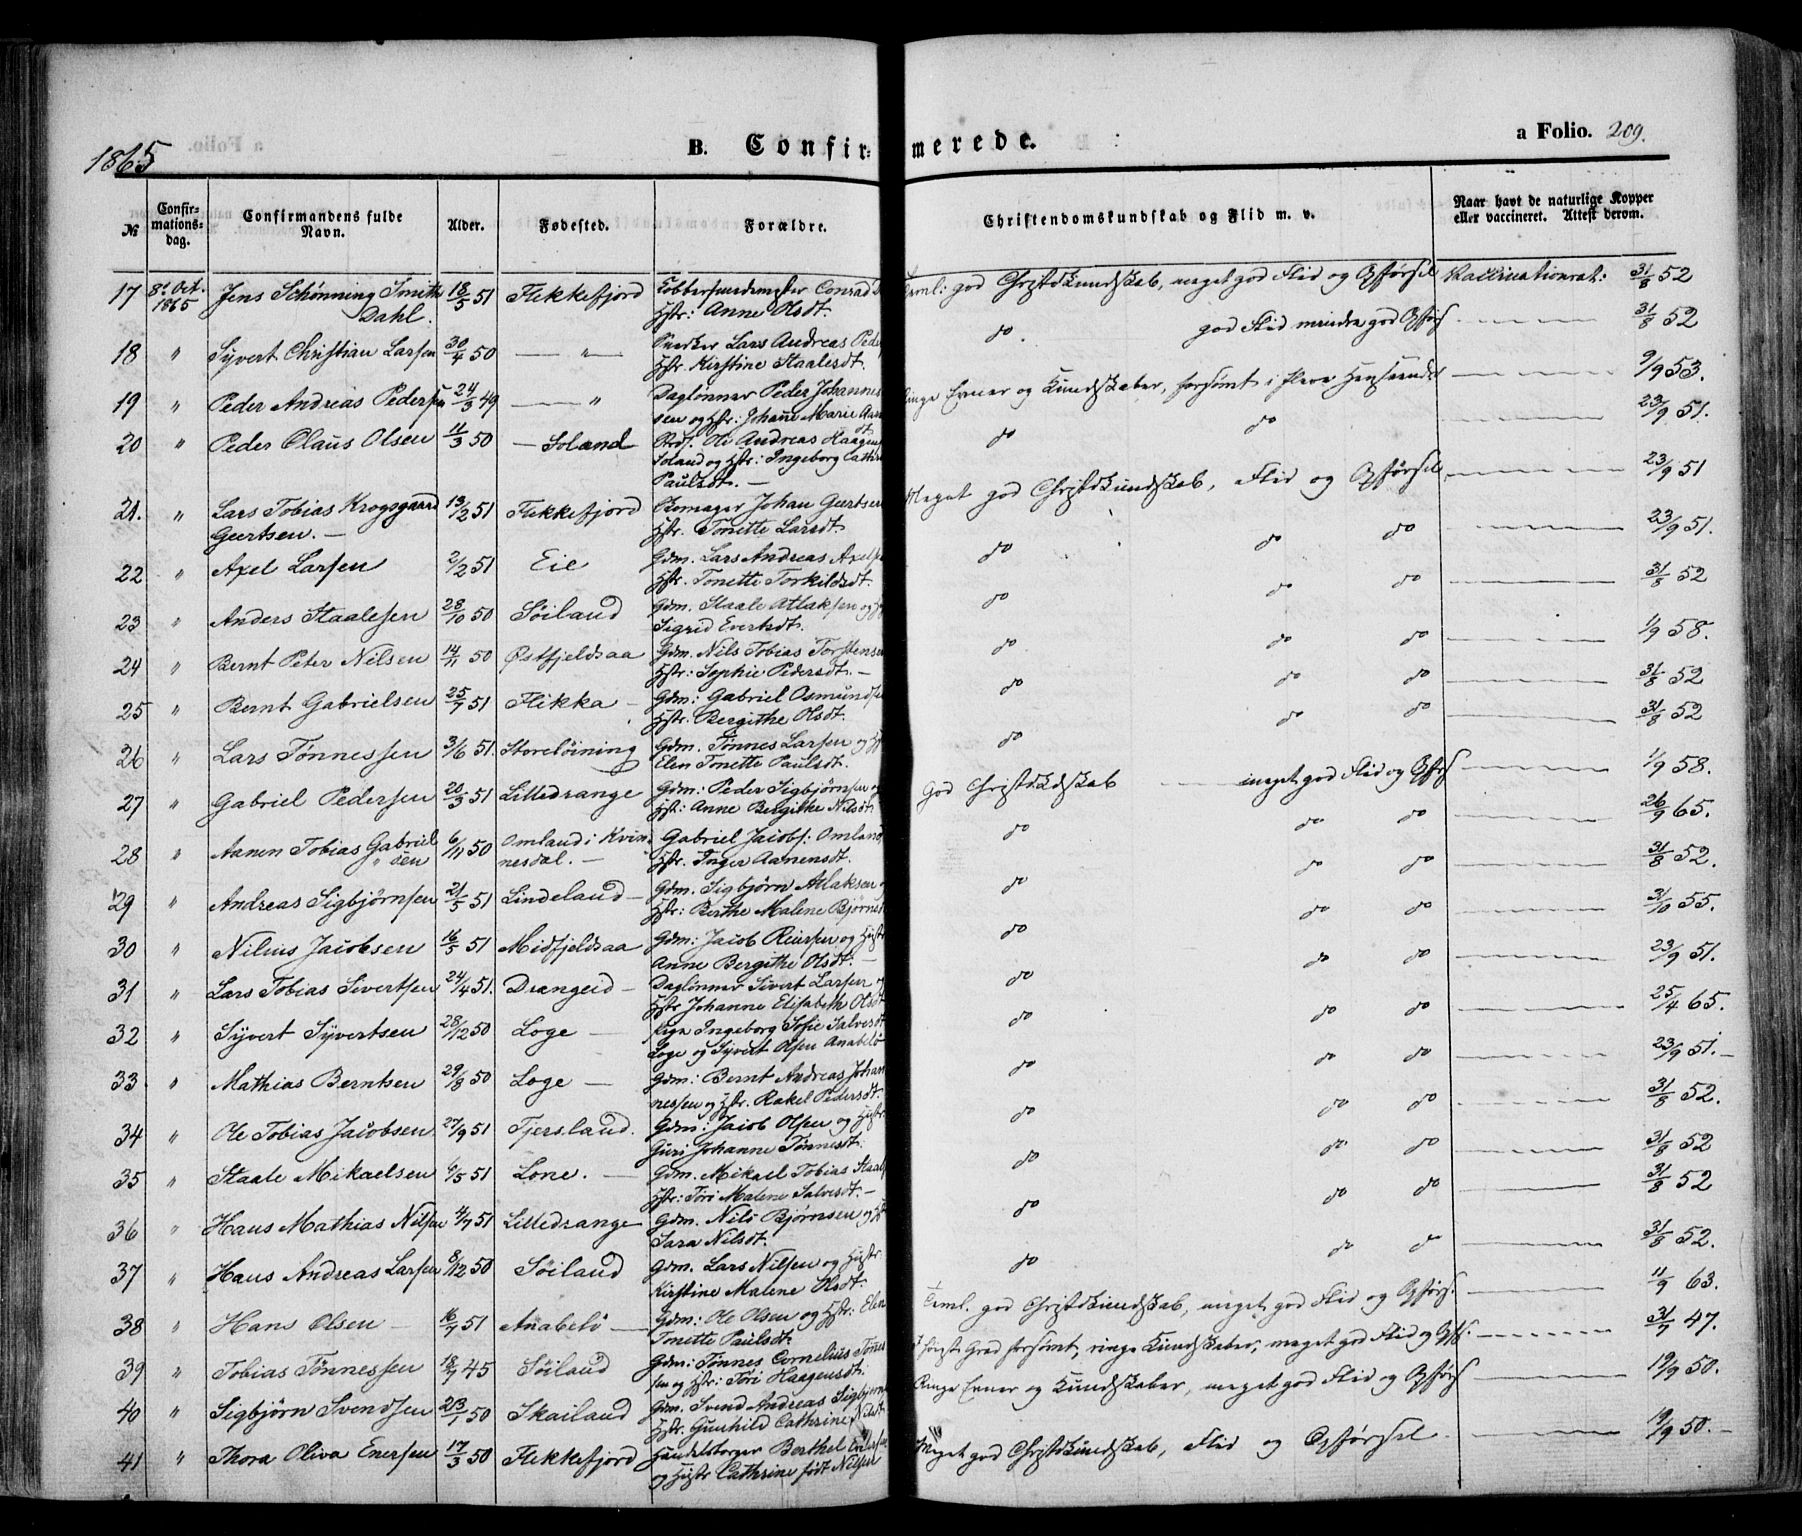 1865
B. Confirmerede.
a Folio. 209.
№ Confirmations-dag. Confirmandens fulde Navn. Alder. Fødested. Forældre. Christendomskundskab og Flid m. v. Naar havt de naturlige Kopper eller vaccineret. Attest derom.
17 8de Oct. 1865 Jens Schønning Smith Dahl. 18/5 51 Flekkefjord Conrad Hstr: Anne Olsdt. god Christdkundskab, meget god Flid og Opførsel 31/8 52
18 " Syvert Christian Larsen 30/4 50 — " — Snedker Lars Andreas Hstr. Kirstine Staalesdt. do. god Flid mindre god Opførs. 31/8 52
19 " Peder Andreas Pedersen 24/3 49 — " Daglønner Peder Johannessen og Hstr: Johanne Marie ringe Evner og Kundskaber, forsømt i flere Henseender 9/9 53.
20 " Peder Claus Olsen 11/3 50 — Soland Ole Andreas Haagens. Soland og Hstr: Ingeborg Cathr. Paulsdt. — do do 23/9 51.
21. " Lars Tobias Krogsgaard Geertsen. — 13/2 51 Flekkefjord Skomager Johan Geertsen Hstr. Tonette Larsdt. Meget god Christdkundskab, Flid og Opførsel 23/9 51
22 " Axel Larsen 2/2 51 Eie Gdm. Lars Andreas Axelsen Hstr. Tonette Torkildsdt. do do do 23/9 51.
23 " Anders Staalesen 28/10 50 Søiland Gdm. Staale Atlaksen og Sigrid Evertsdt. do do do 31/8 52
24 " Bernt Peter Nilsen 14/11 50 Østfjeldsaa Gdm. Nils Tobias Torstensen Hstr: Sophie Pedersdt. — do do do 1/9 58.
25 " Bernt Gabrielsen 25/7 51 Flikka — Gdm: Gabriel Osmundsen Hstr. Bergithe Olsdt. do do do 31/8 52
26 " Lars Tønnessen 3/6 51. Storeløining Gdm. Tønnes Larsen og Elen Tonette Paulsdt. do do do 31/8 52
27 " Gabriel Pedersen 20/3 51 Lilledrange Gdm: Peder Sigbjørnsen og Hstr: Anne Bergithe Nilsdt. God Christdkdskab meget god Flid og Opførs 1/9 58.
28 " Aanen Tobias Gabrielsen 6/11 50 Omland i Kvinnesdal. — Gabriel Jacobs: Omland Hstr. Inger Aanensdt. do do do 26/9 65.
29 " Andreas Sigbjørnsen 21/5 51 Lindeland — Gdm. Sigbjørn Atlaksen Hstr: Berthe Malene Bjørnsdt do do do 31/8 52.
30 " Nilius Jacobsen 16/5 51 Midfjeldsaa Gdm: Jacob Reiersen og Hstr Anne Bergithe Olsdt. — do do do 31/10 55.
31 " Lars Tobias Sivertsen 24/4 51. Drangeid — Daglønner Sivert Larsen og Hstr Johanne Elisabeth Olsdt do do do 23/9 51.
32 " Syvert Syvertsen 28/12 50 Loge — Pige Ingeborg Sofie Salvesdt Loge og Syvert Olsen Anabelø do do do 25/4 65.
33 " Mathias Berntsen 29/8 50 Loge — Gdm: Bernt Andreas Johannessen og Hstr. Rakel Pedersdt. do do do 23/9 51. —
34 " Ole Tobias Jacobsen 27/9 51 Fjersland. Gdm: Jacob Olsen og Hstr Guri Johanne Tønnesdt. do do do 31/8 52.
35 " Staale Mikaelsen 6/5 51 Lone. — Gdm. Mikael Tobias Staals Hstr: Tori Malene Salvesdt. — do do do 31/8 52
36 " Hans Mathias Nilsen 4/7 51 Lilledrange Gdm. Nils Bjørnsen og Sara Nilsdt. do do do 31/8 52
37 " Hans Andreas Larsen 8/12 50 Søiland Gdm. Lars Nilsen og Hustr. Kirstine Malene Olsdt. do do do 31/8 52.
38 " Hans Olsen — 16/7 51 Anabelø — Gdm: Ole Olsen og Hstr: Elen Tonette Paulsdt. god Christdkundskab, meget god Flid og Opførs. 11/9 63.
39 " Tobias Tønnessen 18/7 45 Søiland Gdm: Tønnes Cornelius Tønnessen og Hstr: Tori Haagensdt. I høieste Grad forsømt, ringe Kundskaber, meget god Flid og Opfs. 31/7 47.
40 " Sigbjørn Svendsen 23/1 50 Skailand Gdm. Svend Andreas Sigbjørns Hstr: Gunhild Cathrine Nilsdt Ringe Evner og Kundskaber, meget god Flid og Opførs 19/9 50.
41 " Thora Oliva Enersen 17/3 50 Flekkefjord Handelsborger Berthel Enersen og Hustr Cathrine født Nilsen Meget god Christdkundskab, Flid og Opførsel. 19/9 50. —